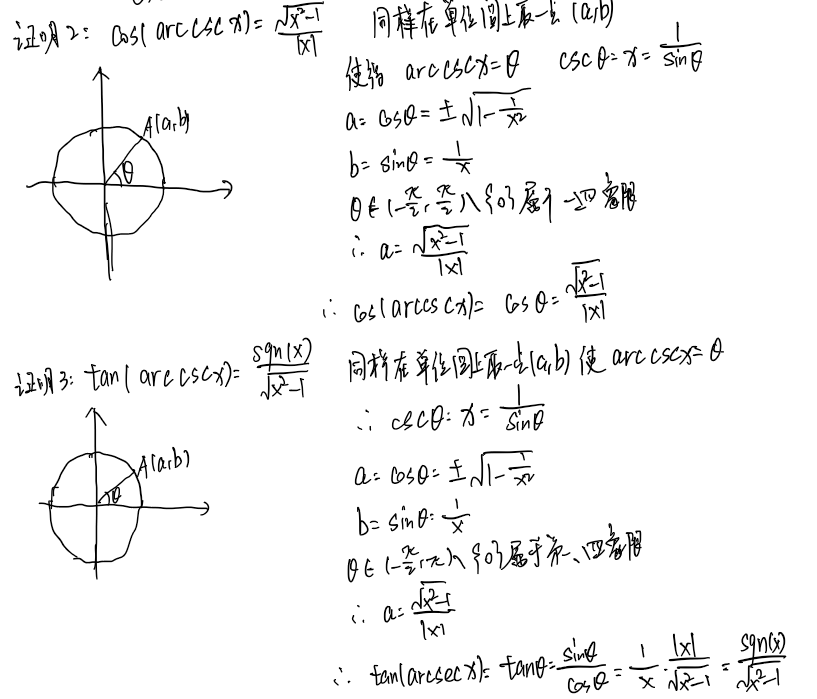 证明2: cos(arccscx)=√(x²-1)/|x| 同样在单位圆上取一点(a,b)
使得 arccscx=θ cscθ=x=1/sinθ
a=cosθ=±√(1-1/x²)
b=sinθ=1/x
θ∈(-π/2,π/2)\{0}属于一四象限
∴a=√(x²-1)/|x|
∴cos(arccscx)=cosθ=√(x²-1)/|x|
A(a,b)
θ
证明3: tan(arccscx)=sgn(x)/√(x²-1) 同样在单位圆上取一点(a,b)使arccscx=θ
∴cscθ=x=1/sinθ
a=cosθ=±√(1-1/x²)
b=sinθ=1/x
θ∈(-π/2,π)\{0}属于第一、四象限
∴a=√(x²-1)/|x|
∴tan(arcsecx)=tanθ=sinθ/cosθ=1/x·|x|/√(x²-1)=sgn(x)/√(x²-1)
A(a,b)
θ